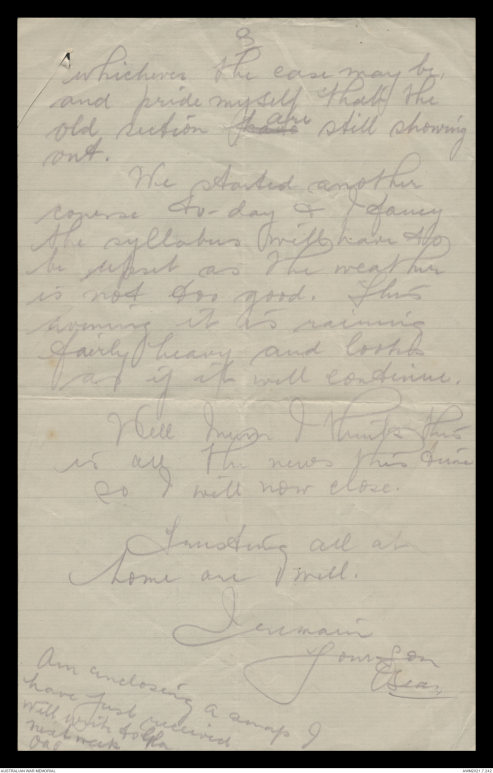 3
whichever the case may be,
and pride myself that the
old section are still showing
out.
We started another
course to-day & I fancy
the syllabus will have to
be upset as the weather
is not too good. This
evening it is raining
fairly heavy and looks
as if it will continue.
Well Mum I think this
is all the news this time
so I will now close.
Trusting all at
home are well.
I remain
Your Son
Am enclosing a snap I
have just received
Will write to
next week
AUSTRALIAN WAR MEMORIAL